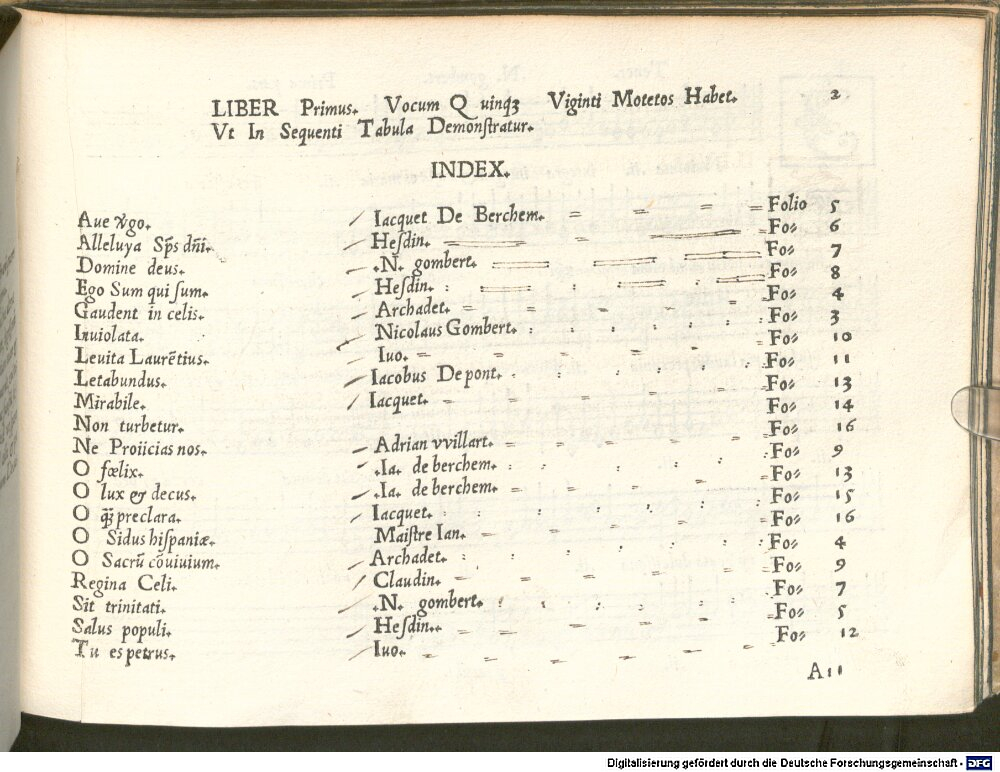 2
LIBER Primus. Vocum Quinqȝ Viginti Motetos Habet.
Vt In Sequenti Tabula Demonſtratur.
INDEX.
Aue v̓go. Iacquet De Berchem. Folio 5
Alleluya Sp̃s dñi. Heſdin. Fo: 6
Domine deus. .N. gombert. Fo: 7
Ego Sum qui ſum. Heſdin. Fo: 8
Gaudent in celis. Archadet. Fo: 4
Inuiolata. Nicolaus Gombert. Fo: 3
Leuita Laurẽtius. Iuo. Fo: 10
Letabundus. Iacobus De pont. Fo: 11
Mirabile. Iacquet. Fo: 13
Non turbetur. Fo: 14
Ne Proiicias nos. Adrian vvillart. Fo: 16
O fœlix. .Ia. de berchem. Fo: 9
O lux & decus. .Ia. de berchem. Fo: 13
O q̃ȝ preclara. Iacquet. Fo: 15
O Sidus hiſpaniæ. Maiſtre Ian. Fo: 16
O Sacrũ cõuiuium. Archadet. Fo: 4
Regina Celi. Claudin. Fo: 9
Sit trinitati. .N. gombert. Fo: 7
Salus populi. Heſdin. Fo: 5
Tu es petrus. Iuo. Fo: 12
A ii
Digitalisierung gefördert durch die Deutsche Forschungsgemeinschaft - DFG